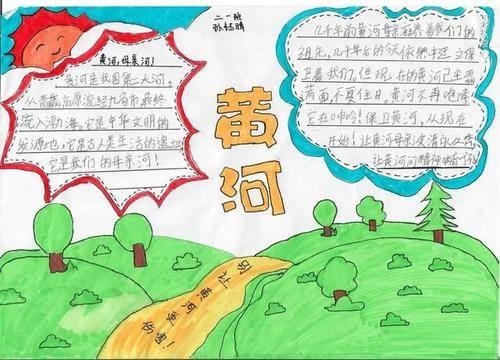 二一班
黄河,母亲河!
黄河是我国第二大河。
从青藏高原流经九省市最终
流入渤海。它是中华文明的
发源地,它是古人类生活的遗址
它是我们的母亲河!
几千年前黄河母亲培养着我们的
祖先,几千年后的今天依然
卫着我们,但现在的黄河已
面,不复往日。黄河不再咆哮
它在!保卫黄河,从现在
开始!让黄河母亲波清永久
让黄河精神
黄
河
别让黄河受伤害!